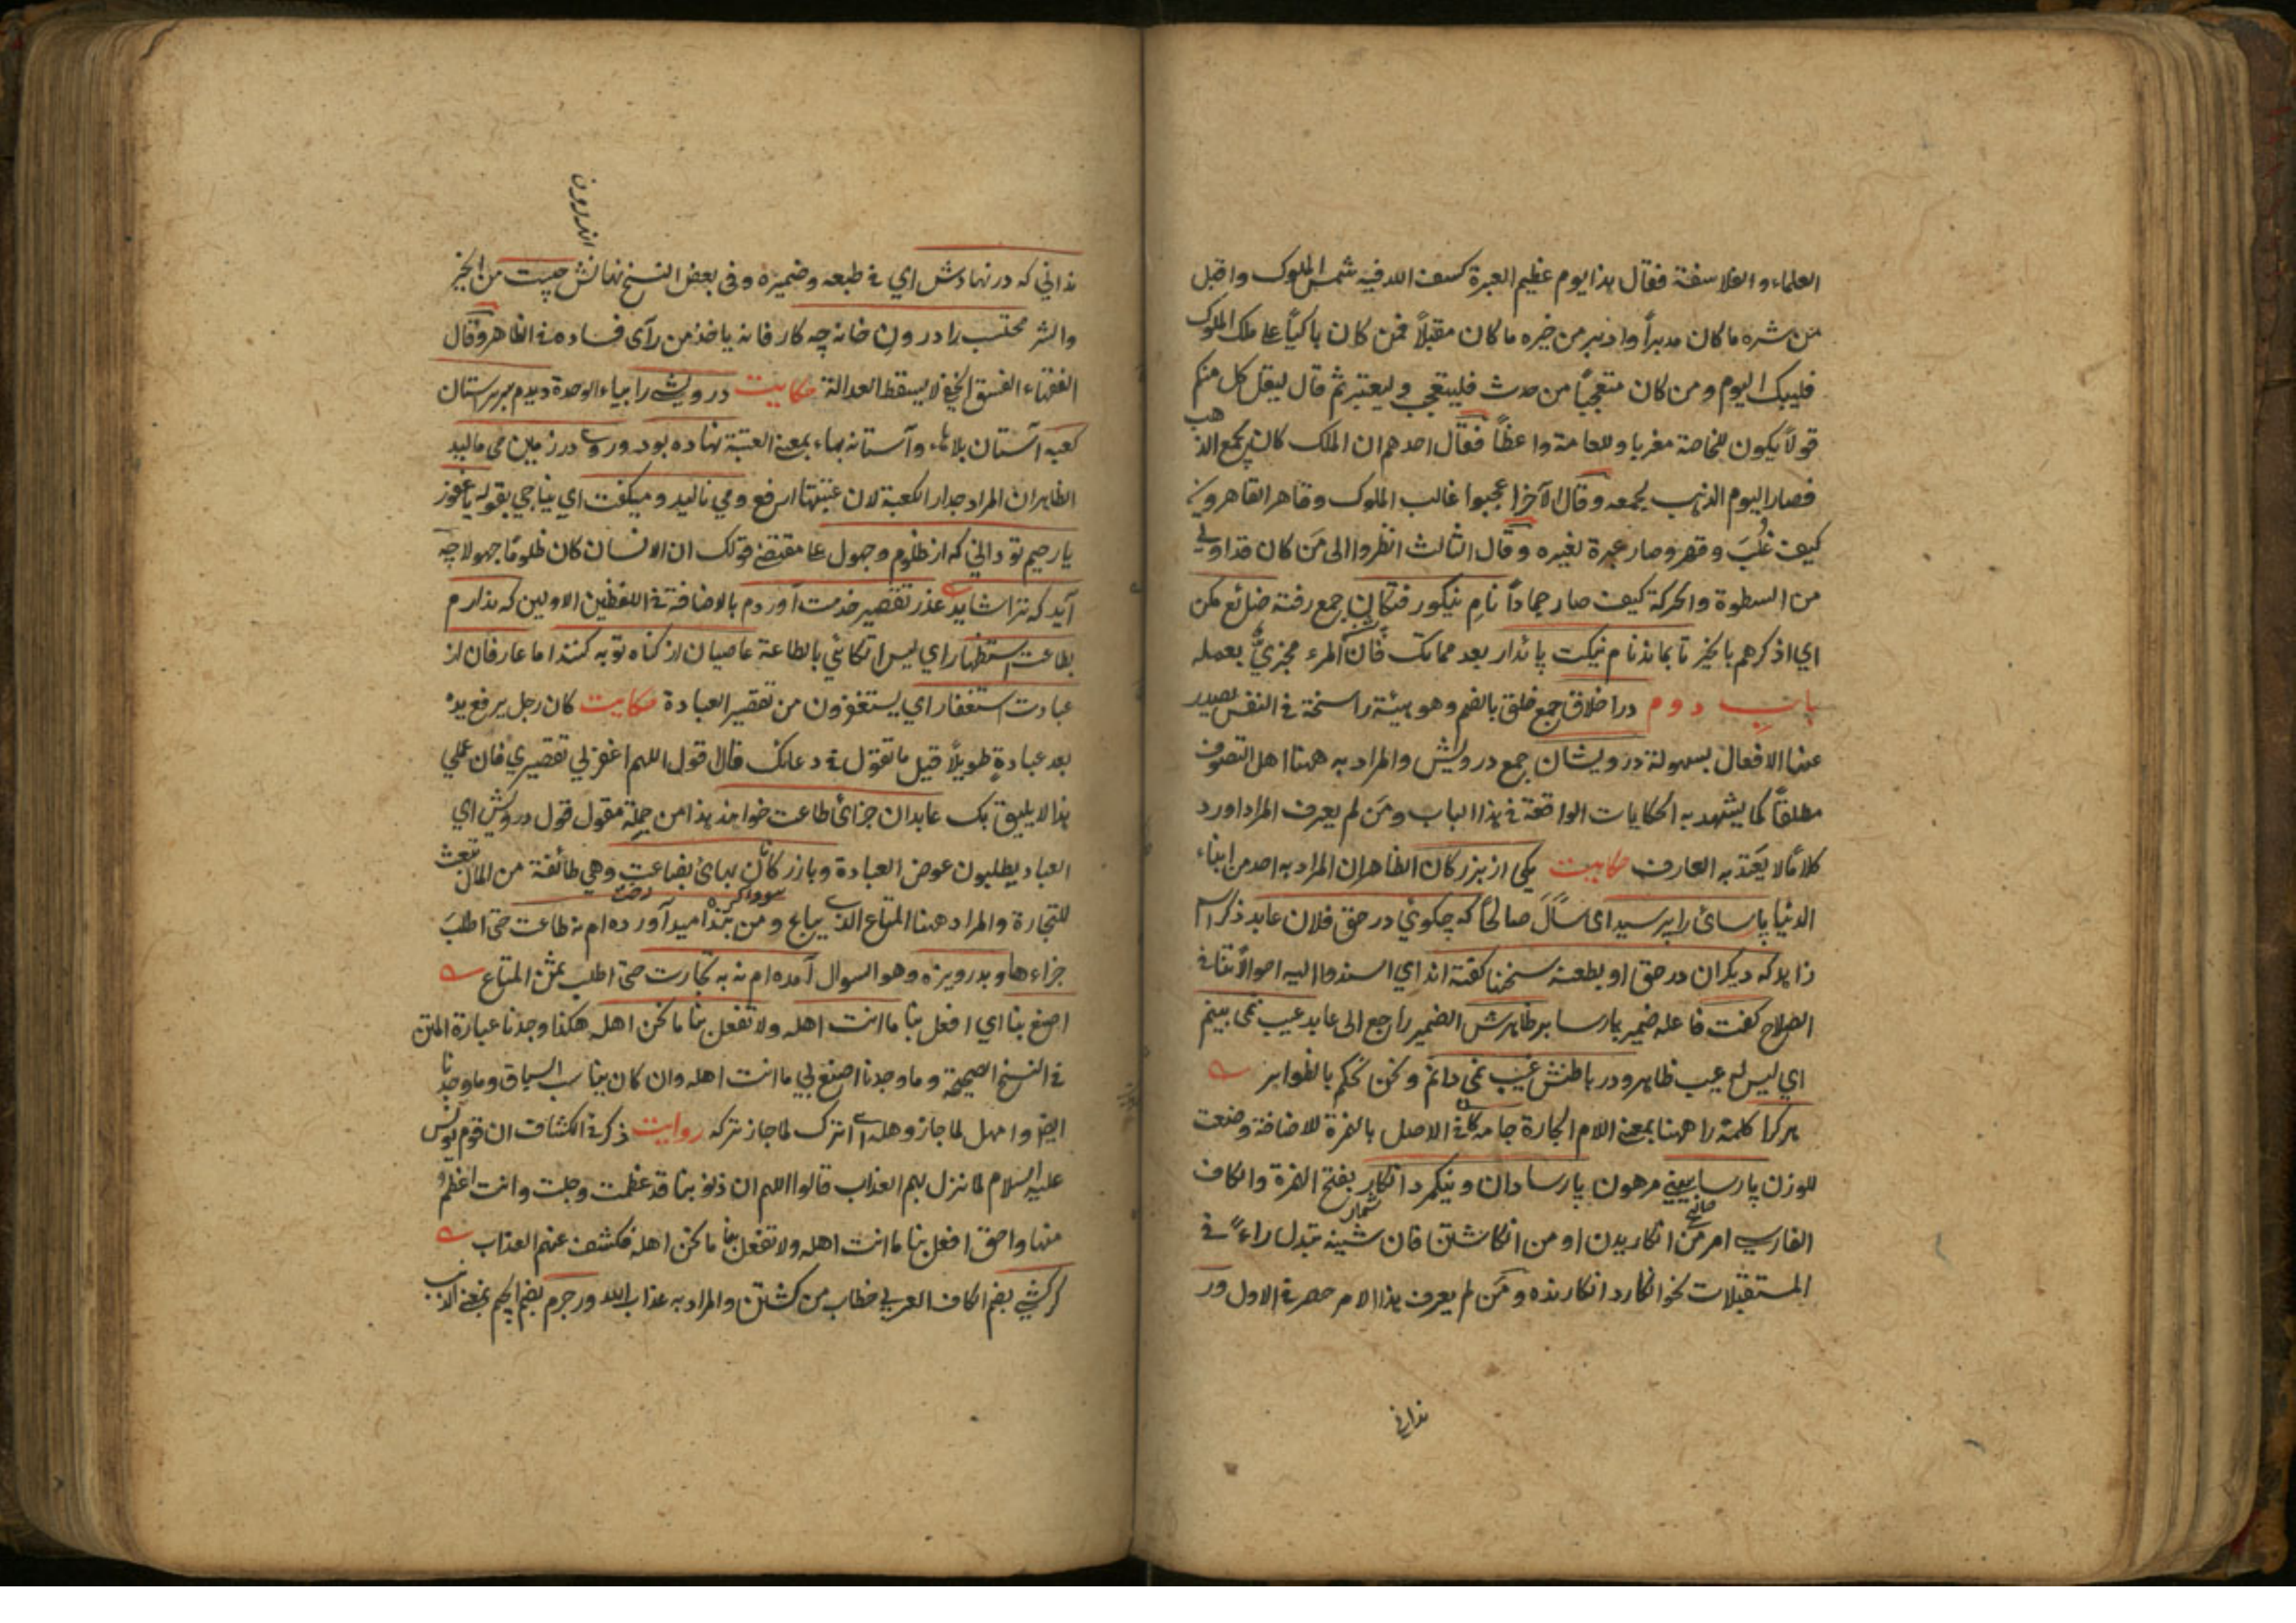 العلماء و الفلاسفة فقال هذا يوم عظيم العبرة كسف الله فيه شمس الملوك واقبل
من شره ما كان مدبراً وادبر من خيره ما كان مقبلاً فمن كان باكياً على ملك الملوك
فليبك اليوم و من كان متعجباً من حدث فليتعجب و ليعتبر ثم قال ليقل كل منكم
قولاً يكون للخاصة مغريا و للعامة واعظاً فقال احدهم ان الملك كان يجمع الذهب
فصار اليوم الذهب يجمعه و قال الآخر اعجبوا غالب الملوك و قاهر القاهرين
كيف غُلبَ و قهر و صار عبرة لغيره و قال الثالث انظروا الى مَن كان قد اوتي
من السطوة والحركة كيف صار جماداً نامِ نيكورفتكان جمع رفته ضائع مكن
اي اذكرهم بالخير تا بماند نام نيكت پائدار بعد مماتك فان المرء مجزيٌّ بعمله
باب دوم در اخلاق جمع خلق بالضم و هو هيئة راسخة في النفس يصدر
عنها الافعال بسهولة درويشان جمع درويش والمراد به ههنا اهل التصوف
مطلقاً كما يشهد به الحكايات الواقعة في هذا الباب و مَن لم يعرف المراد اورد
كلامًا لا يَعتد به العارف حكايت يكى از بزركان الظاهر ان المراد به احد من ابناء
الدنيا پارسائى را پرسيد اى سأل صالحاً كه چكوئي در حق فلان عابد ذكر اسم
زاهد كه ديكران در حق او بطعنه سخنها كفته اند اي اسندوا اليه احوالاً تنافي
الصلاح كفت فاعله ضمير پارسا بر ظاهرش الضمير راجع الى عابد عيب نمى بينم
اي ليس له عيب ظاهر و در باطنش غيب نمى دانم و نحن نحكم بالظواهر
هر كرا كلمة را ههنا بمعنى اللام الجارة جامه كان في الاصل بالهمزة للاضافة وضعت
للوزن پارسا بيني مرهون پارسا دان و نيكمرد انكار بفتح الهمزة والكاف
شمار
صالح
الفارسي امر من انكاريدن او من انكاشتن فان شينه تبدل راءً في
المستقبلات نحو انكارد انكارنده و مَن لم يعرف هذا الامر حصره في الاول ور
ندانى
اندرون
نداني كه در نهادش اي في طبعه و ضميره و فى بعض النسخ نهانش چيست من الخير
والشر محتسب را درونِ خانه چه كار فانه ياخذ من رآى فساده في الظاهر و قال
الفقهاء الفسق الخفي لا يسقط العدالة حكايت درويشے را بياء الوحدة ديدم بر سر ستان
كعبه آستان بلا هاء و آستانه بهاء بمعنى العتبة نهاده بود و روے در زمين مى ماليد
الظاهر ان المراد جدار الكعبة لان عتبتها ارفع و مي ناليد و ميكفت اي يناجي بقوله يا غفور
يا رحيم تو داني كه از ظلوم و جهول على مقتضى قولك ان الانسان كان ظلومًا جهولا چه
آيد كه ترا شايد عذر تقصير خدمت آوردم بالاضافة في اللفظين الاولين كه ندارم
بطاعت استظهار اي ليس اتكائي بالطاعة عاصيان از كناه توبه كنند اما عارفان از
عبادت استغفار اي يستغفرون من تقصير العبادة حكايت كان رجل يرفع يده
بعد عبادةٍ طويلاً قيل ما تقول في دعائك قال اقول اللهم اغفر لي تقصيري فان عملي
هذا لا يليق بك عابدان جزائ طاعت خواهند هذا من جملة مقول قول درويش اي
العباد يطلبون عوض العبادة و بازركانان بهائ بضاعت و هي طائفة من المال تبعث
سوداكر
رخت
للتجارة والمراد ههنا المتاع الذي يباع و من بنده اميد آورده ام نه طاعت حتى اطلبَ
جزاءها و بدريوزه و هو السوال آمده ام نه به تجارت حتى اطلب بثمن المتاع
اصنع بنا اي افعل بنا ما انت اهله و لا تفعل بنا ما نحن اهله هكذا وجدنا عبارة المتن
في النسخ الصحيحة و ما وجدنا اصنع بي ما انت اهله و ان كان يناسب السياق و ما وجدنا
ايضا و امهل لما جاز و هله اي اترك لما جاز تركه روايت ذكر في الكشاف ان قوم يونس
عليه السلام لما نزل بهم العذاب قالوا اللهم ان ذنوبنا قد عظمت و جلت و انت اعظم
منها و احق افعل بنا ما انت اهله و لا تفعل بنا ما نحن اهله فكشف عنهم العذاب
كر كشي بضم الكاف العربي خطاب من كشتن والمراد به عذاب الله ور جرم بضم الجيم بمعنى الذنب